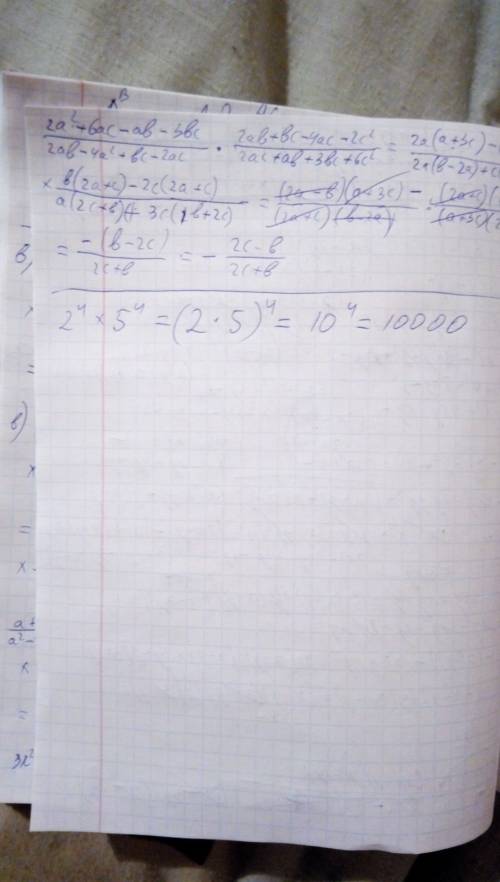 (2a²+6ac-ab-3bc)/(2ab-4a²+bc-2ac) · (2ab+bc-4ac-2c²)/(2ac+ab+3bc+6c²) = 2a(a+3c)- / 2a(b-2a)+c
× (b(2a+c)-2c(2a+c))/(a(2c+b)+3c(b+2c)) = ((2a-b)(a+3c)-)/((2a+c)(b-2a)) · (2a+c)( / (a+3c)(2
= -(b-2c)/(2c+b) = - (2c-b)/(2c+b)
2⁴ × 5⁴ = (2·5)⁴ = 10⁴ = 10000
в)
=
в)
x
=
x
a+
a²-
x
=
3x²